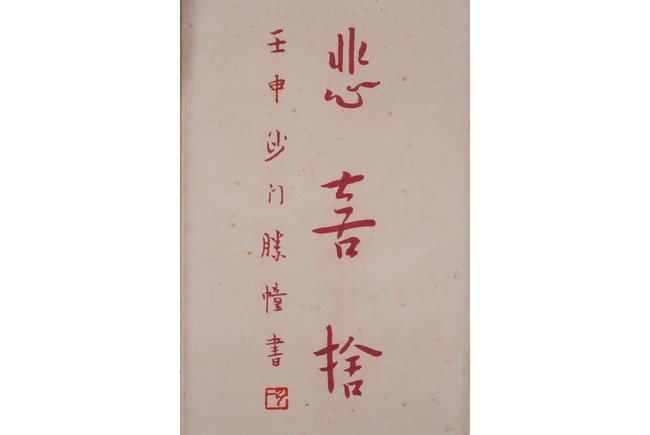 悲喜捨
壬申沙门勝幢書